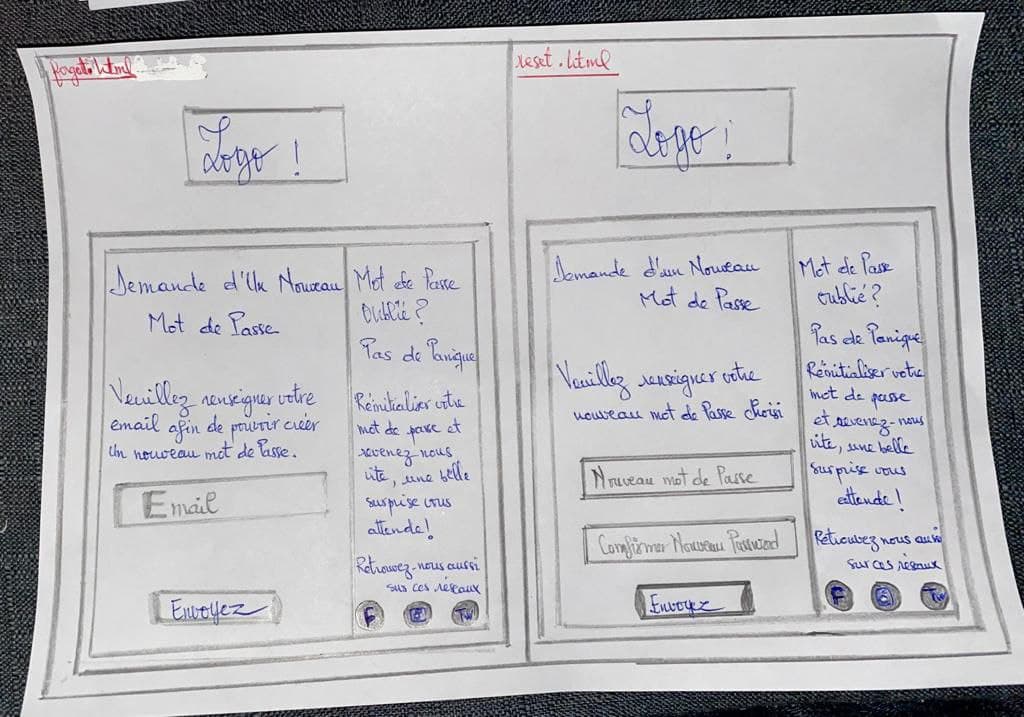 forgot.html
Logo !
Demande d'Un Nouveau
Mot de Passe
Veuillez renseigner votre
email afin de pouvoir créer
Un nouveau mot de Passe.
Email
Envoyez
Mot de Passe
Oublié?
Pas de Panique
Réinitialiser votre
mot de passe et
revenez-nous
vite, une belle
surprise vous
attende!
Retrouvez-nous aussi
sur ces réseaux
F
Tw
reset.html
Logo !
Demande d'un Nouveau
Mot de Passe
Veuillez renseigner votre
nouveau mot de Passe choisi
Nouveau mot de Passe
Comfirmer Nouveau Password
Envoyez
Mot de Passe
oublié?
Pas de Panique
Réinitialiser votre
mot de passe
et revenez-nous
vite, une belle
surprise vous
attende!
Retrouvez-nous aussi
sur ces réseaux
F
Tw